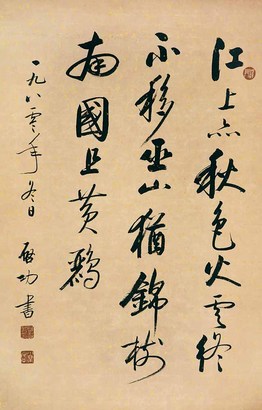 江上亦秋色火雲終
不移巫山猶錦樹
南國且黃鸝
一九八零年冬日 啟功書